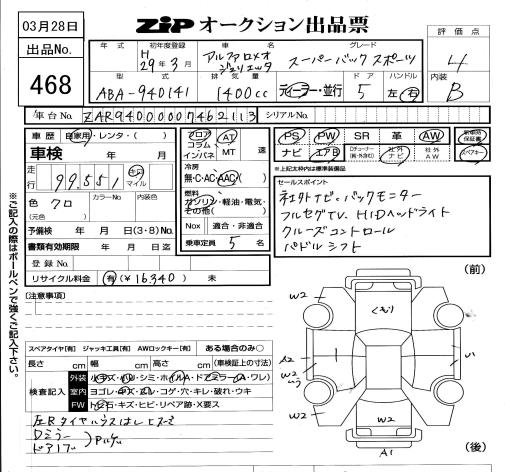 03月28日
出品No.
468
ZiP オークション出品票
年式 初年度登録 車名 グレード
H 29年3月 アルファロメオ ジュリエッタ スーパーバックスポーツ
型式 排気量 ドア ハンドル
ABA-940141 1400cc 元ディーラー・並行 5 左・右
評価点
4
内装
B
車台No. ZAR94000007462113 シリアルNo.
車歴 自家用・レンタ・( )
車検 年 月
走行 99,551 キロ マイル
色 クロ カラーNo. 内装色
(元色)
予備検 年 月 日(3・8)No.
書類有効期限 年 月 日迄
登録No.
リサイクル料金 有(¥16340) 未
フロア コラム インパネ AT MT 速
冷房
無・C・AC・AAC
燃料
ガソリン・軽油・電気・その他( )
Nox 適合・非適合
乗車定員 5 名
PS PW SR 革 AW 新車時保証書
ナビ エアB 社外ナビ 社外AW スペアキー
*上記太枠内は標準装備品
セールスポイント
社外ナビ・バックモニター
フルセグTV、HIDヘッドライト
クルーズコントロール
パドルシフト
※ご記入の際はボールペンで強くご記入下さい。
[注意事項]
スペアタイヤ[有] ジャッキ工具[有] AWロックキー[有] ある場合のみ○
長さ cm 幅 cm 高さ cm (車検証上の寸法)
検査記入
外装
室内 ヨゴレ・コゲ・穴・キレ・破れ・ウキ
FW トビ石・キズ・ヒビ・リペア跡・X要ス
(前)
W2 W2
くもり
A2
W2
W2 W2
W2
A1
(後)